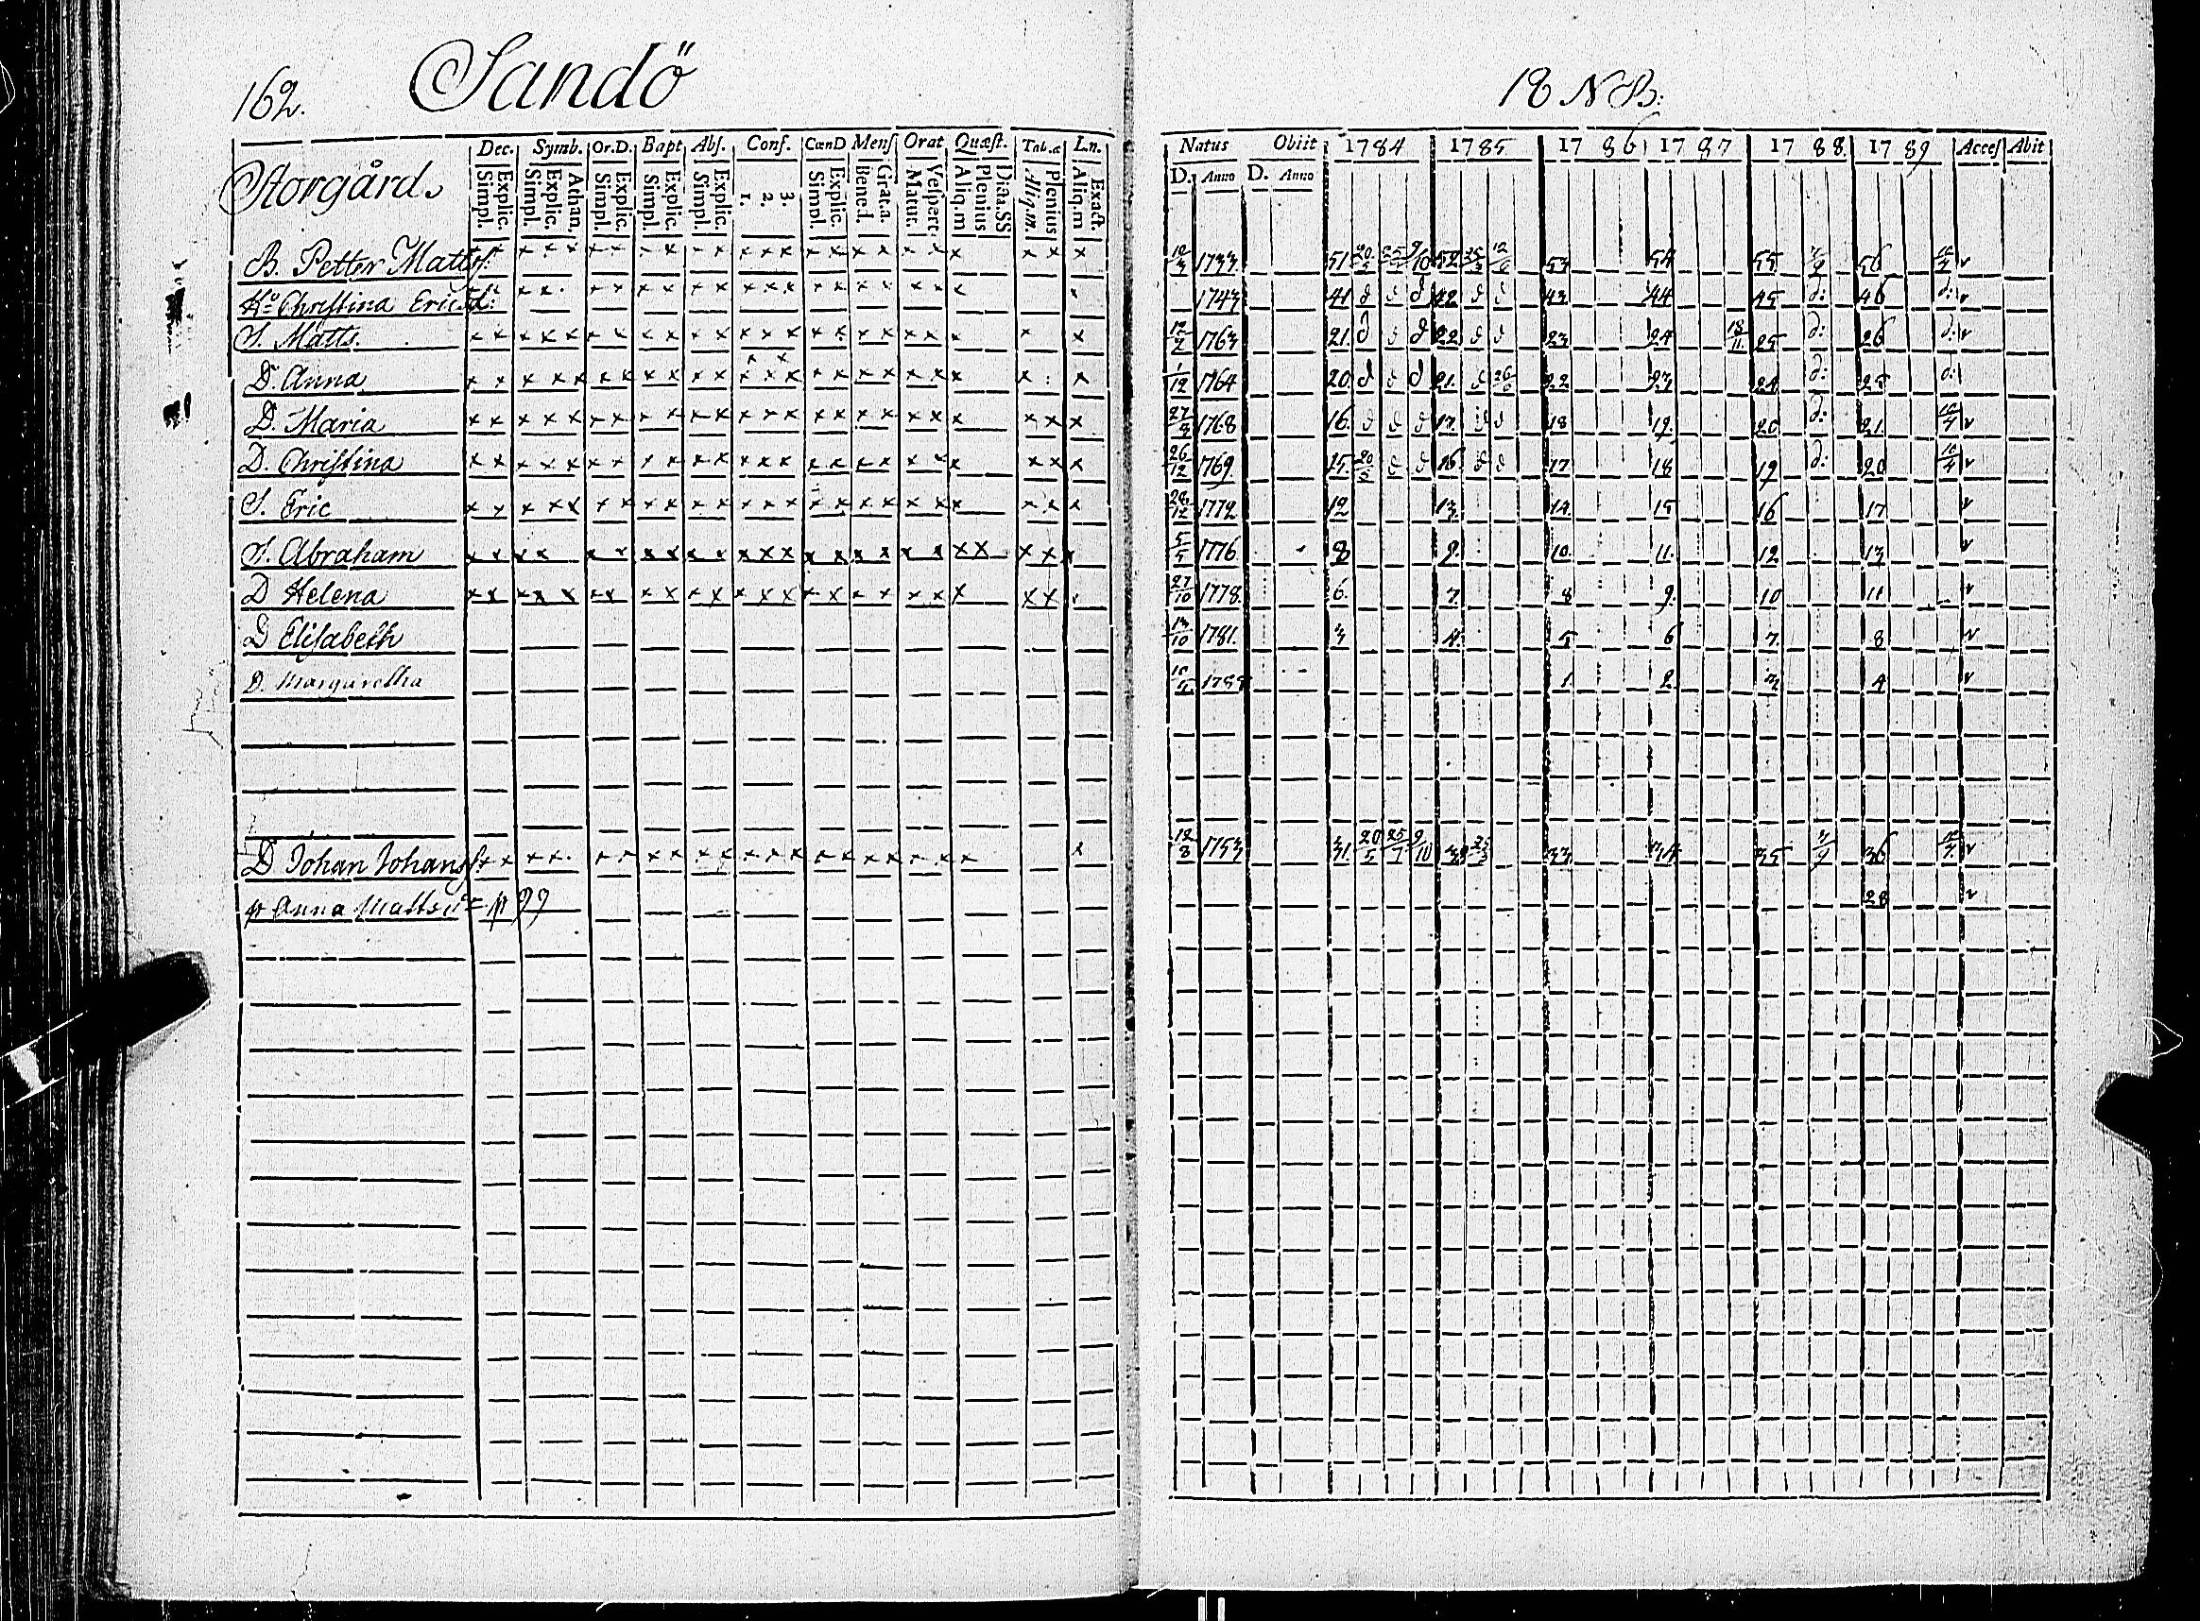 162. Sandö
18 NB:
Storgård.
Dec. Symb. Or.D. Bapt Abs. Conf. CœnD Menſ Orat Quæſt. Tab.æ L.n.
Simpl. Explic. Simpl. Explic. Athan. Simpl. Explic. Simpl. Explic. Simpl. Explic. 1. 2. 3 Simpl. Explic. Bened. Grat.a. Matut. Veſpert. Aliq.m Plenius Dicta.SS Aliq.m. Plenius Aliq.m Exact.
Natus Obiit 1784 1785 1786 1787 1788. 1789 Acceſ Abit
D. Anno D. Anno
B. Petter Mattsſ. 1733. 51 52 53 54 55 56
H:o Chriſtina Ericsd: 1743 41 d d d 42 d d 43 44 45 d: 46 d:
S. Matts. 12/2 1763 21. d d d 22 d d 23 24 18/11 25 d: 26 d:
D. Anna 1/12 1764 20. d d d 21. d 22 23 24 d: 25 d:
D. Maria 1768 16. d d d 17. d d 18 19. 20 d: 21.
D. Chriſtina 26/12 1769. 15. 20/5 d d 16. d d 17 18 19 d: 20
S. Eric 1772 12 13. 14. 15 16 17
S. Abraham 5/5 1776 8 9. 10. 11. 12 13
D Helena 27/10 1778. 6. 7. 8 9. 10 11
D Eliſabeth 13/10 1781. 3 4. 5 6 7. 8
D. Margaretha 1. 2 3 4
D Johan Johansſ: 12/8 1753 31. 20/5 9/10 33 34 35 36
Anna Matts 99 28